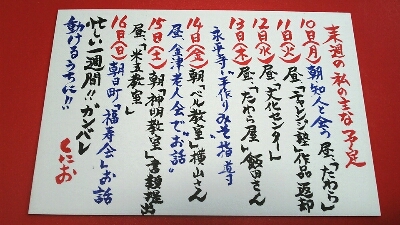 来週の私の主な予定
10日(月)朝、知人と会う 昼、「たわら」
11日(火)昼、「チャレンジ塾」作品返却
12日(水)昼、「文化センター」
13日(木)昼、「たわら屋」飯田さん
永平寺「手作りみそ指導す
14日(金)朝「ベル教室」横山さん
昼、金津老人会で“お話”
15日(土)朝「神明教室」書類提出
昼、「米五教室」
16日(日)朝日町「福寿会」お話
忙しい一週間!!ガンバレ
動けるうちに!!
くにお